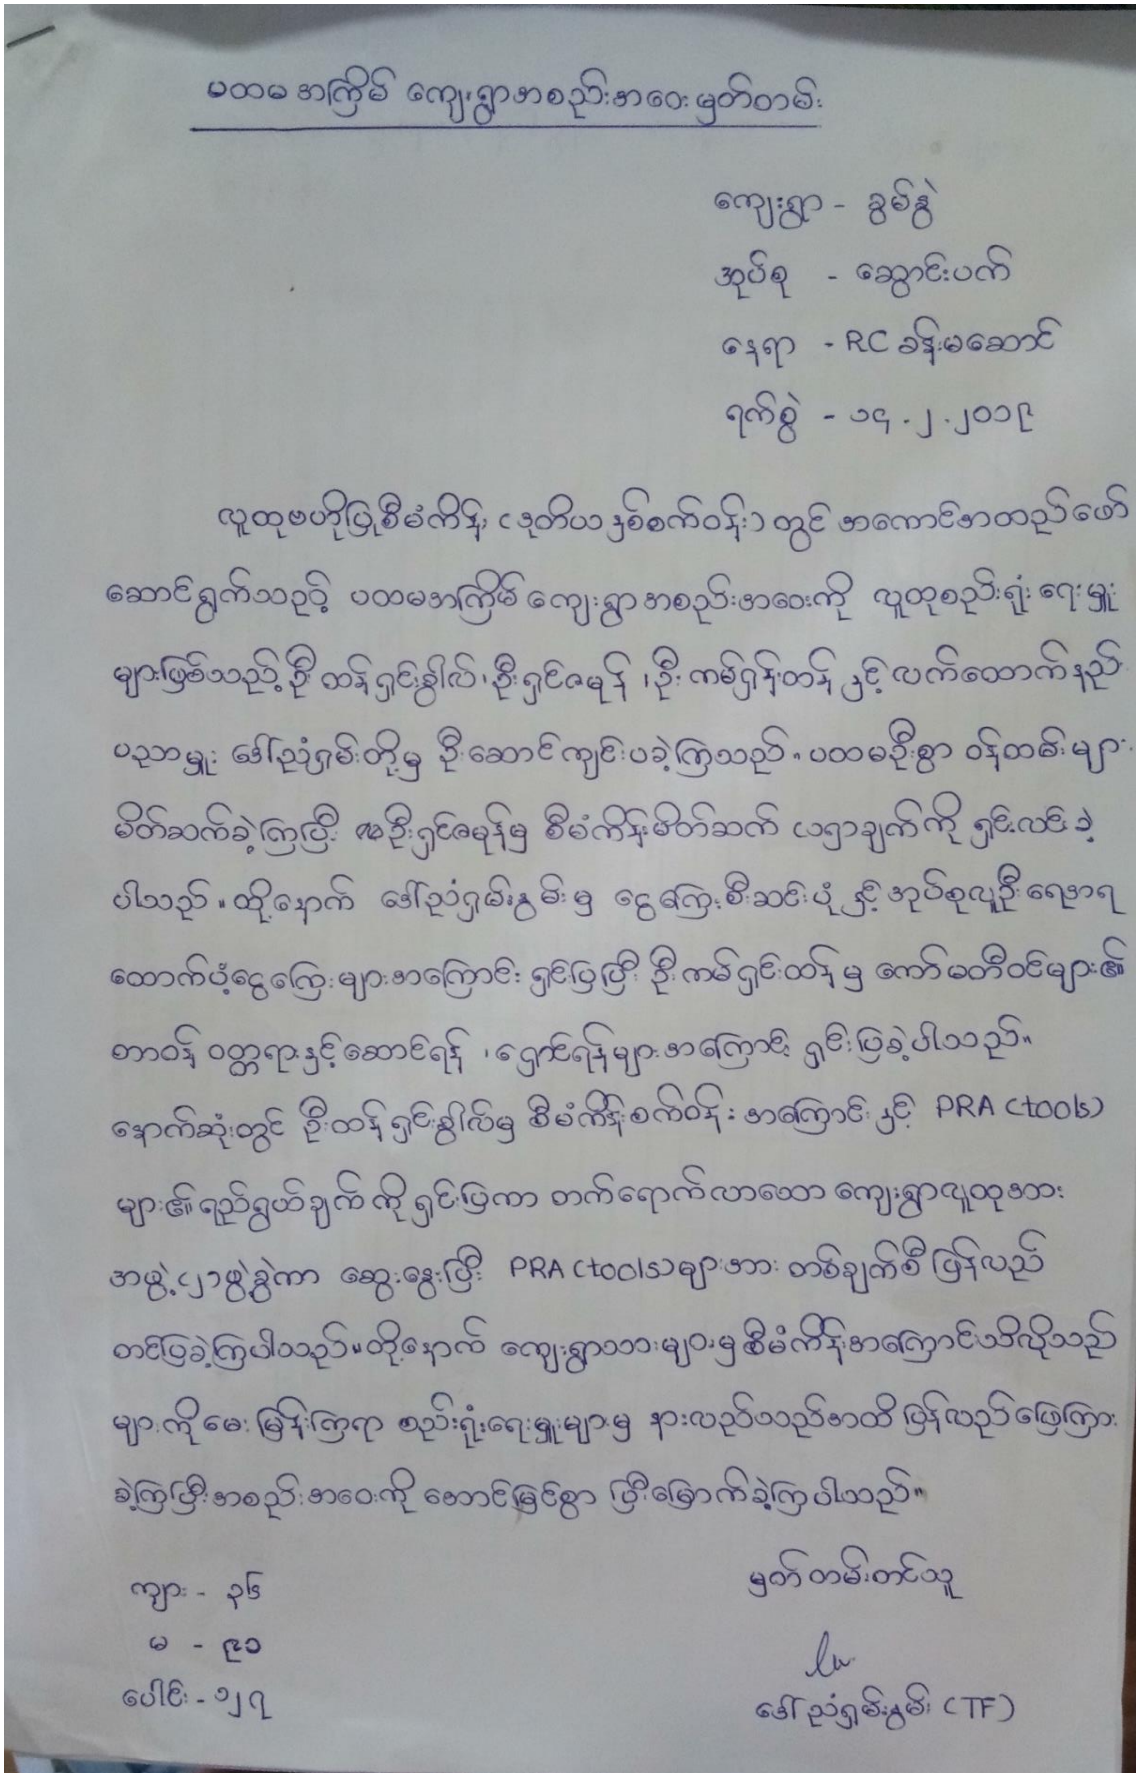 ပထမအကြိမ် ကျေးရွာအစည်းအဝေးမှတ်တမ်း
ကျေးရွာ - ခွမ်နွဲ
အုပ်စု - ဆွောင်းပက်
နေရာ - RC ခန်းမဆောင်
ရက်စွဲ - ၁၄.၂.၂၀၁၉
လူထုဗဟိုပြုစီမံကိန်း (ဒုတိယနှစ်စက်ဝန်း) တွင် အကောင်အထည်ဖော်
ဆောင်ရွက်သည့် ပထမအကြိမ် ကျေးရွာအစည်းအဝေးကို လူထုစည်းရုံးရေးမှူး
များဖြစ်သည့် ဦးထန်ရှင်းနွါလ်၊ ဦးရှင်ဇမုန်၊ ဦးကမ်ရှန်းတန် နှင့် လက်ထောက်နည်း
ပညာမှူး ဒေါ်ညုံရှမ်းတို့မှ ဦးဆောင်ကျင်းပခဲ့ကြသည်။ ပထမဦးစွာ ဝန်ထမ်းများ
မိတ်ဆက်ခဲ့ကြပြီး ဦးရှင်ဇမုန်မှ စီမံကိန်းမိတ်ဆက် ရှာချက်ကို ရှင်းလင်းခဲ့
ပါသည်။ ထို့နောက် ဒေါ်ညုံရှမ်းနွမ်းမှ ငွေကြေးစီးဆင်းပုံ နှင့် အုပ်စုလူဦးရေအရ
ထောက်ပံ့ငွေကြေးများအကြောင်း ရှင်းပြပြီး ဦးကမ်ရှင်းထန်မှ ကော်မတီဝင်များ၏
တာဝန် ဝတ္တရားနှင့်ဆောင်ရန်၊ ရှောင်ရန်များအကြောင်း ရှင်းပြခဲ့ပါသည်။
နောက်ဆုံးတွင် ဦးထန်ရှင်းနွါလ်မှ စီမံကိန်းစက်ဝန်းအကြောင်းနှင့် PRA (tools)
များ၏ ရည်ရွယ်ချက်ကို ရှင်းပြကာ တက်ရောက်လာသော ကျေးရွာလူထုအား
အဖွဲ့ (၂) ဖွဲ့ခွဲကာ ဆွေးနွေးပြီး PRA (tools) များအား တစ်ချက်စီ ပြန်လည်
တင်ပြခဲ့ကြပါသည်။ ထို့နောက် ကျေးရွာသားများမှ စီမံကိန်းအကြောင်းသိလိုသည်
များကို မေးမြန်းကြရာ စည်းရုံးရေးမှူးများမှ နားလည်သည်အထိ ပြန်လည်ဖြေကြား
ခဲ့ကြပြီး အစည်းအဝေးကို အောင်မြင်စွာ ပြီးမြောက်ခဲ့ကြပါသည်။
ကျား - ၃၆
မ - ၉၁
ပေါင်း - ၁၂၇
မှတ်တမ်းတင်သူ
ဒေါ်ညုံရှမ်းနွမ်း (TF)